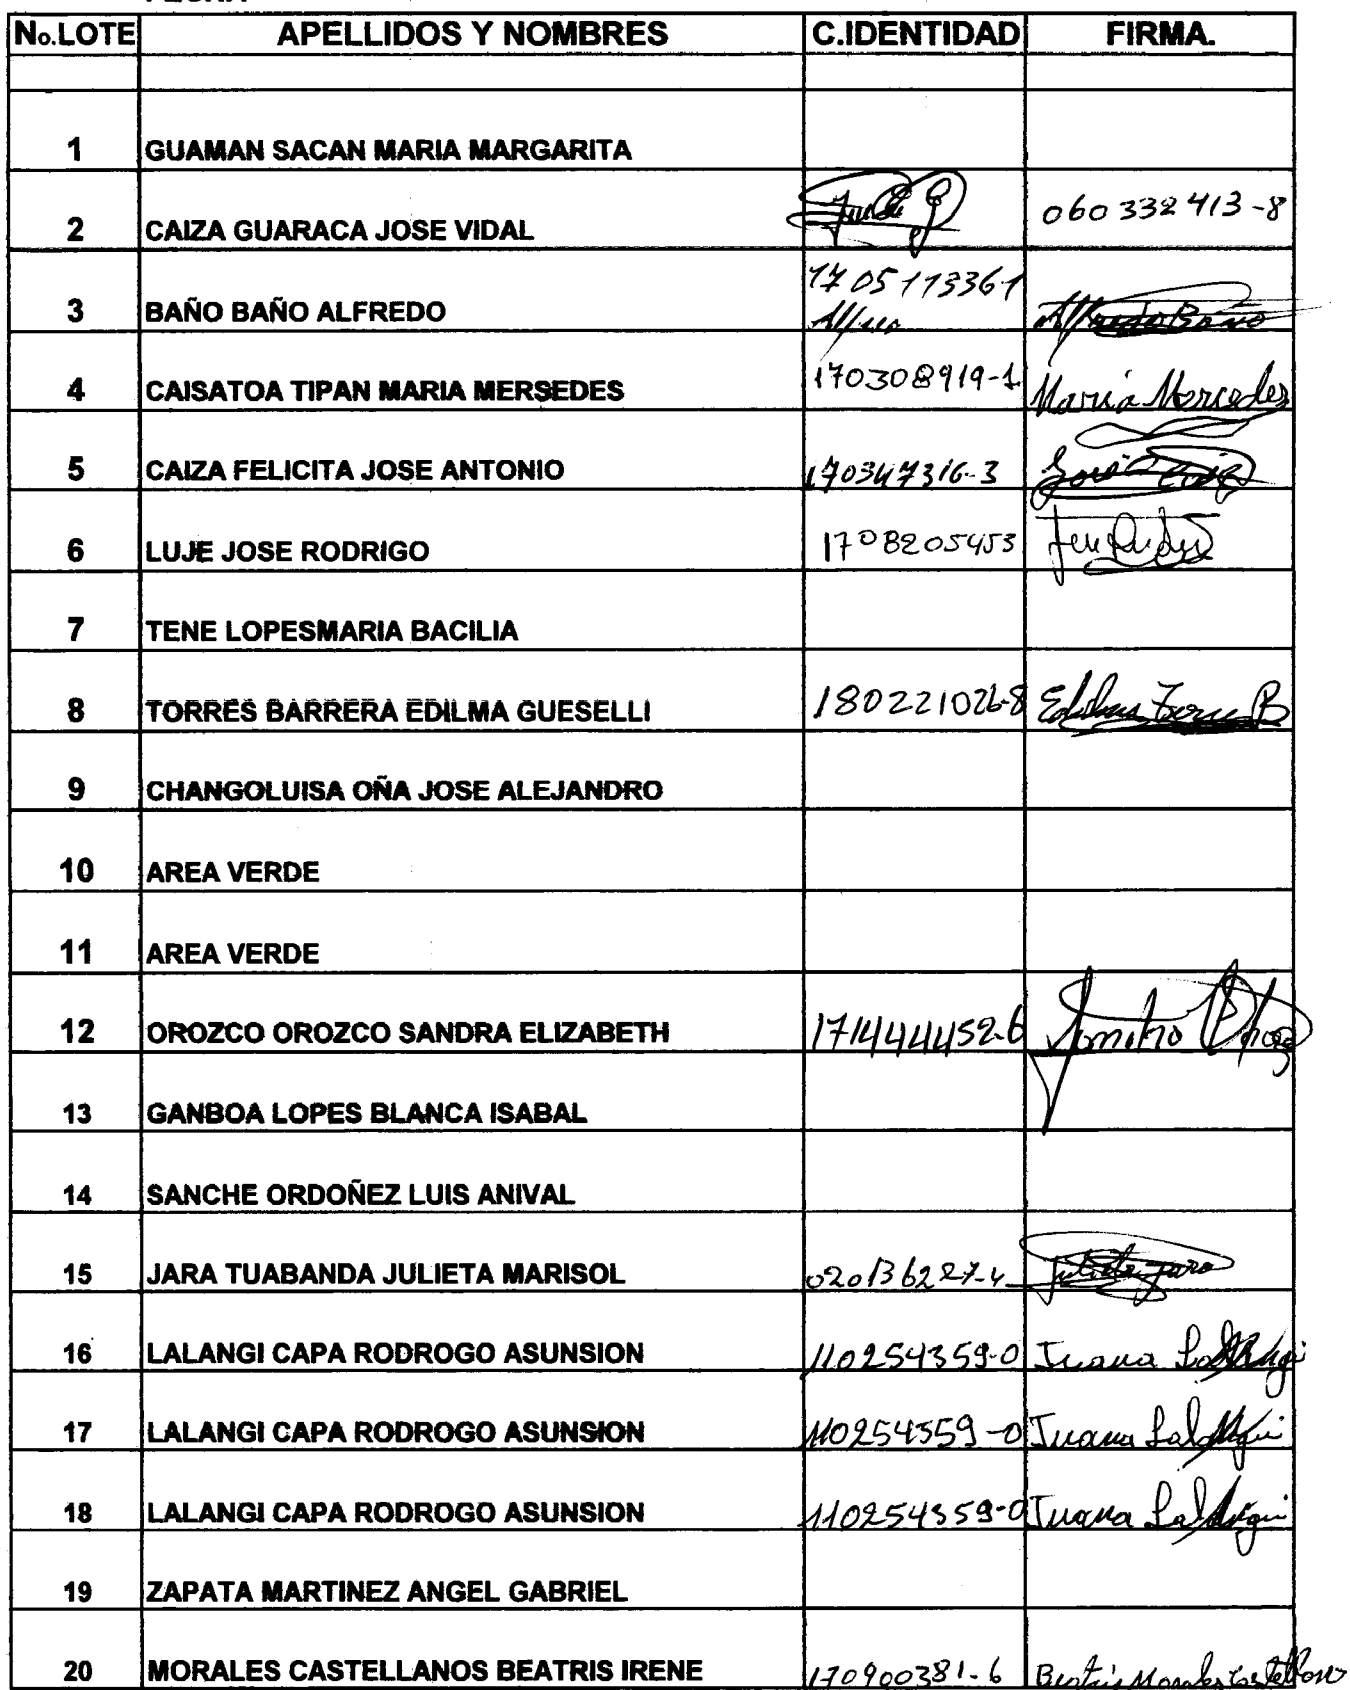 No.LOTE APELLIDOS Y NOMBRES C.IDENTIDAD FIRMA.
1 GUAMAN SACAN MARIA MARGARITA
2 CAIZA GUARACA JOSE VIDAL 060332413-8
3 BAÑO BAÑO ALFREDO 1705113361 Alfredo Baño
4 CAISATOA TIPAN MARIA MERSEDES 170308919-1 Maria Mercedes
5 CAIZA FELICITA JOSE ANTONIO 170347316-3 José Caiza
6 LUJE JOSE RODRIGO 1708205453
7 TENE LOPESMARIA BACILIA
8 TORRES BARRERA EDILMA GUESELLI 180221026-8 Edilma Torres B
9 CHANGOLUISA OÑA JOSE ALEJANDRO
10 AREA VERDE
11 AREA VERDE
12 OROZCO OROZCO SANDRA ELIZABETH 171444452-6
13 GANBOA LOPES BLANCA ISABAL
14 SANCHE ORDOÑEZ LUIS ANIVAL
15 JARA TUABANDA JULIETA MARISOL 020136227-4 Julieta Jara
16 LALANGI CAPA RODROGO ASUNSION 110254359-0 Juana Lalangui
17 LALANGI CAPA RODROGO ASUNSION 110254359-0 Juana Lalangui
18 LALANGI CAPA RODROGO ASUNSION 110254359-0 Juana Lalangui
19 ZAPATA MARTINEZ ANGEL GABRIEL
20 MORALES CASTELLANOS BEATRIS IRENE 170900381-6 Beatris Morales Castellanos